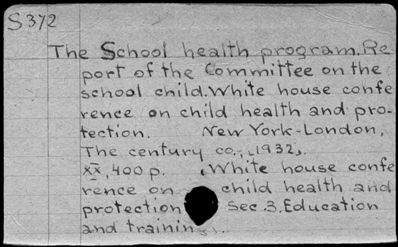 S372
The School health program. Re
port of the Committee on the
school child. White house confe
rence on child health and pro-
tection. New York-London,
The century co., 1932.
XX, 400 p. (White house confe
rence on child health and
protection Sec. 3. Education
and training).